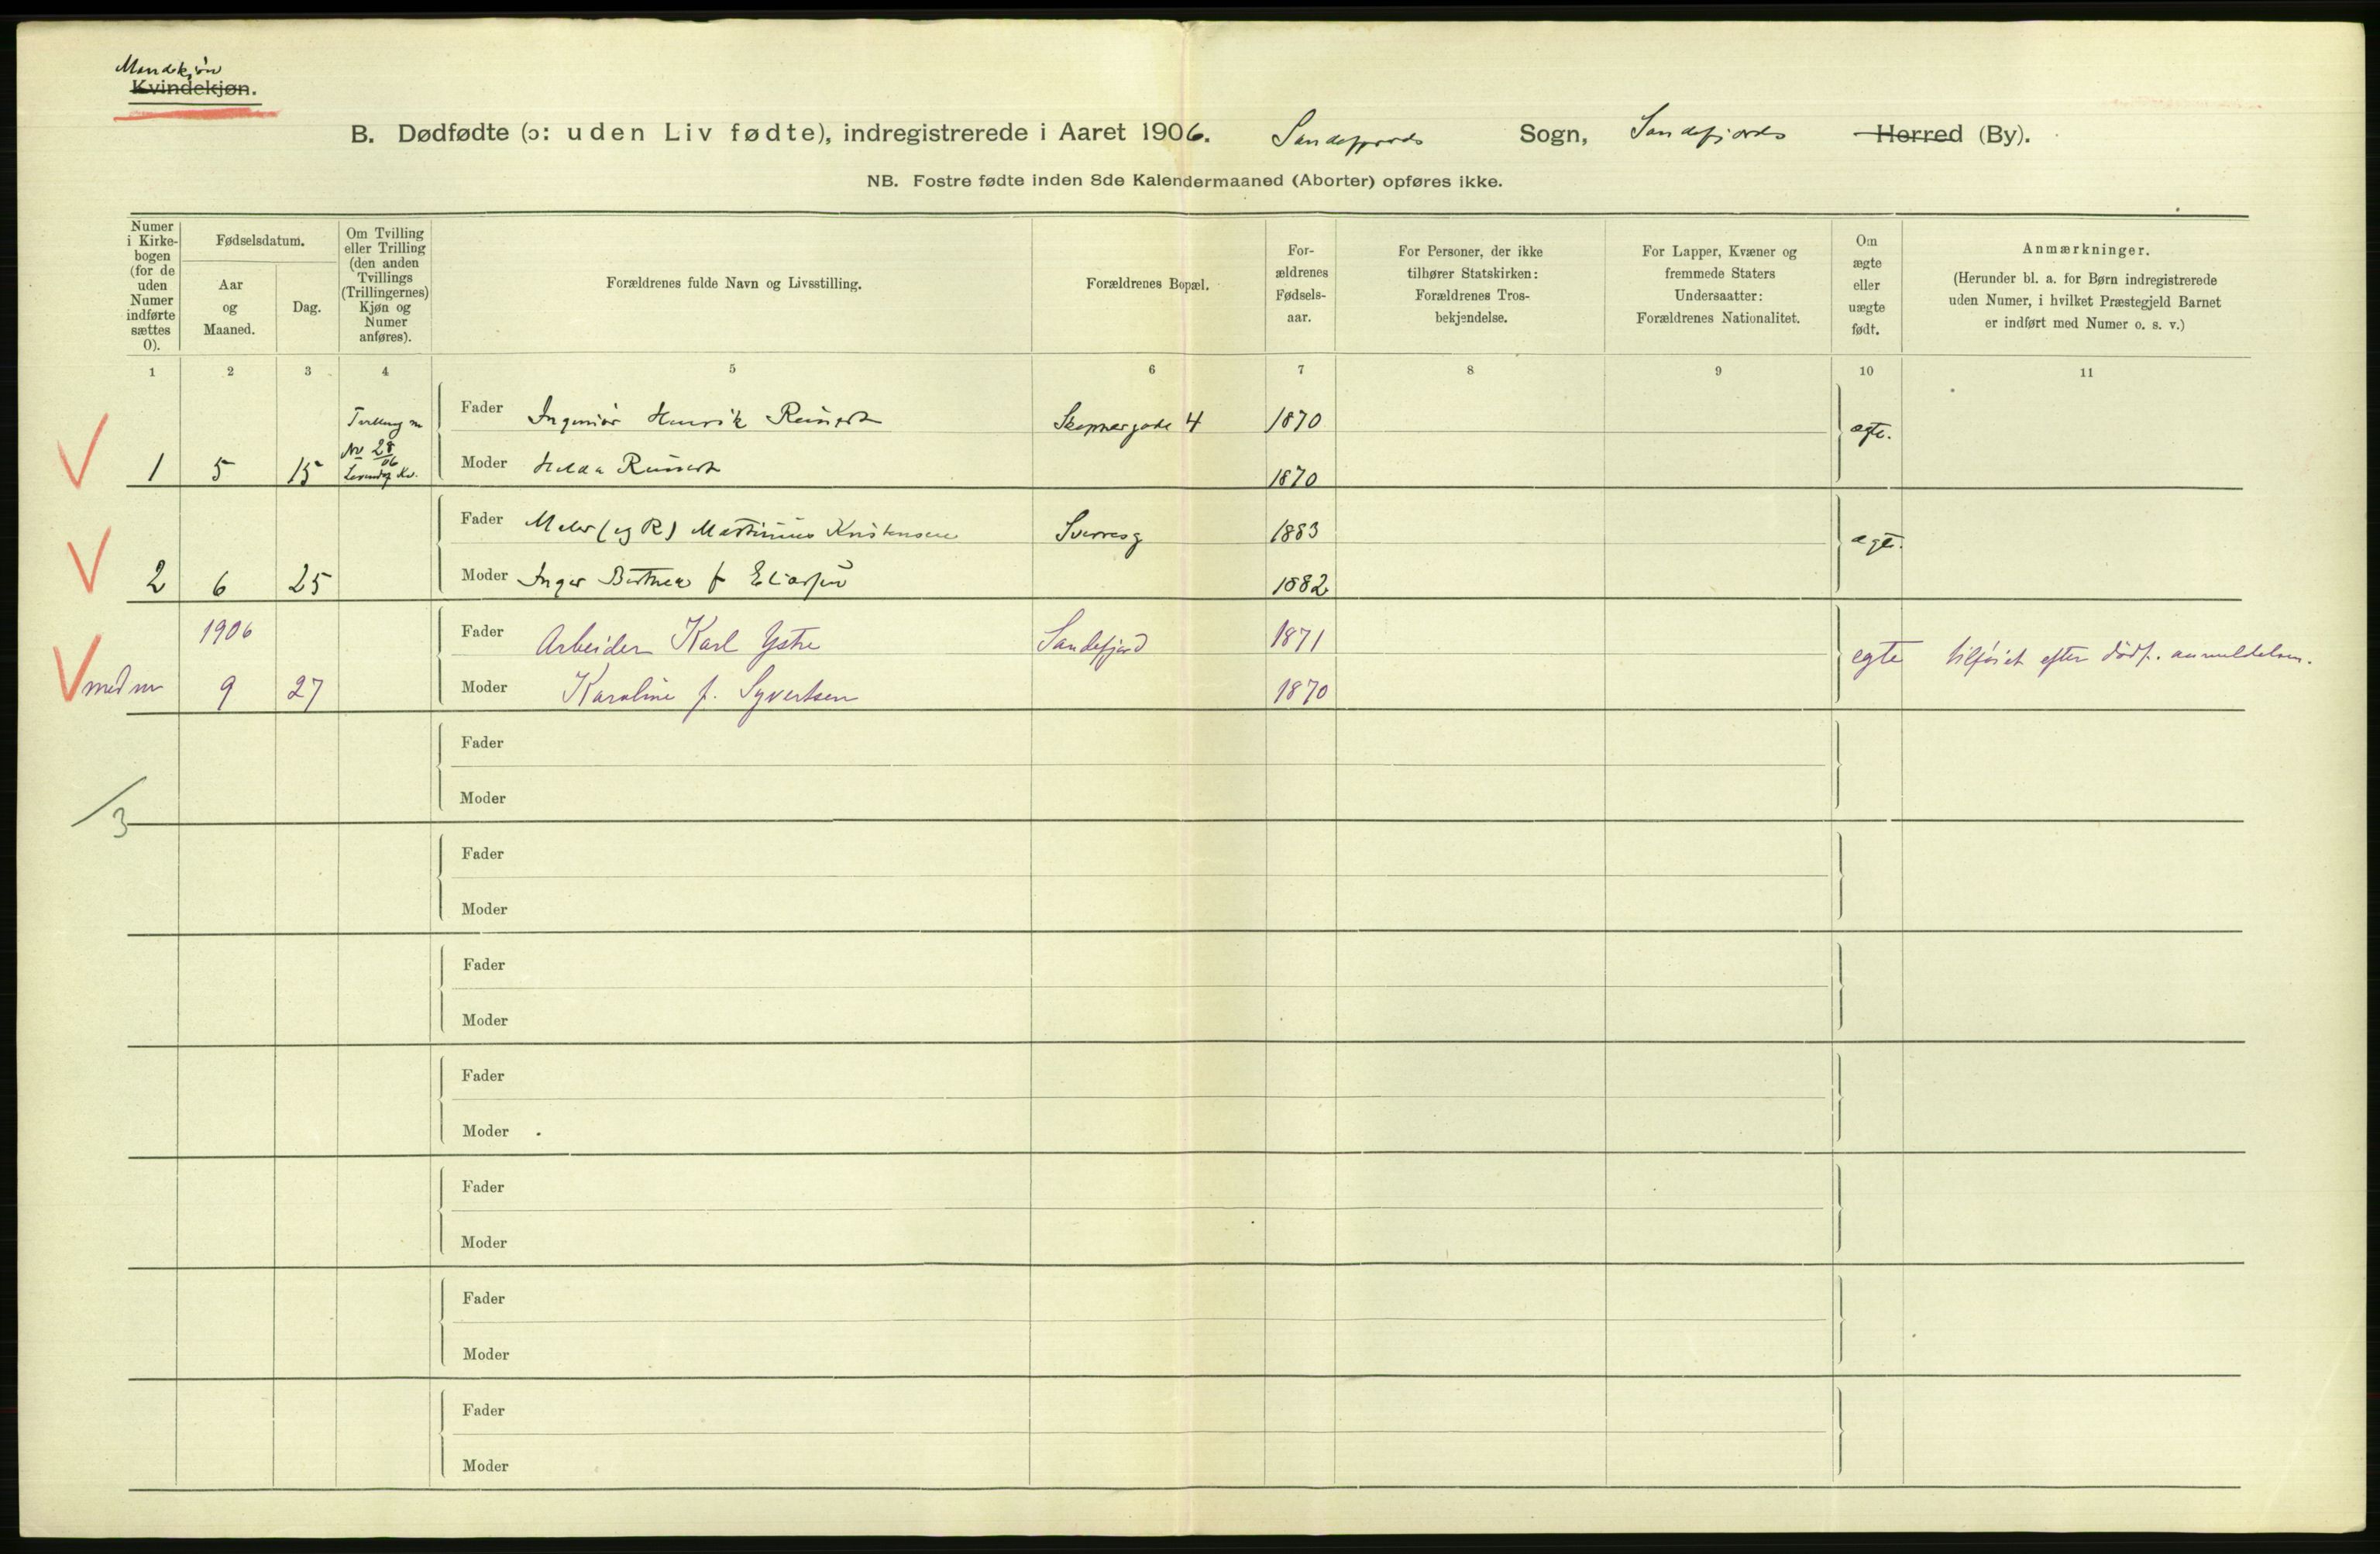 Mandekjøn
Kvindekjøn.
B. Dødfødte (ɔ: uden Liv fødte), indregistrerede i Aaret 1906. Sandefjords Sogn, Sandefjords Herred (By).
NB. Fostre fødte inden 8de Kalendermaaned (Aborter) opføres ikke.
Numer
i Kirke-
bogen
(for de
uden
Numer
indførte
sættes
0).
Fødselsdatum.
Aar
og
Maaned.
Dag.
Om Tvilling
eller Trilling
(den anden
Tvillings
(Trillingernes)
Kjøn og
Numer
anføres).
Forældrenes fulde Navn og Livsstilling.
Forældrenes Bopæl.
For-
ældrenes
Fødsels-
aar.
For Personer, der ikke
tilhører Statskirken:
Forældrenes Tros-
bekjendelse.
For Lapper, Kvæner og
fremmede Staters
Undersaatter:
Forældrenes Nationalitet.
Om
ægte
eller
uægte
født.
Anmærkninger.
(Herunder bl. a. for Børn indregistrerede
uden Numer, i hvilket Præstegjeld Barnet
er indført med Numer o. s. v.)
1 2 3 4 5 6 7 8 9 10 11
Tvilling m
No 28/06
Levende Kv.
Fader Ingeniør Henrik 4 1870 egte.
1 5 15 Moder 1870
Fader Maler (og R) Martinius Kristensen Sverresg 1883 egte.
2 6 25 Moder Inger f Eliassen 1882
1906 Fader Arbeider Karl Ystre Sandefjord 1871 egte tilføiet efter dødf. anmeldelsen.
med nr 9 27 Moder Karoline f. Syvertsen 1870
Fader
Moder
3
Fader
Moder
Fader
Moder
Fader
Moder
Fader
Moder
Fader
Moder
Fader
Moder